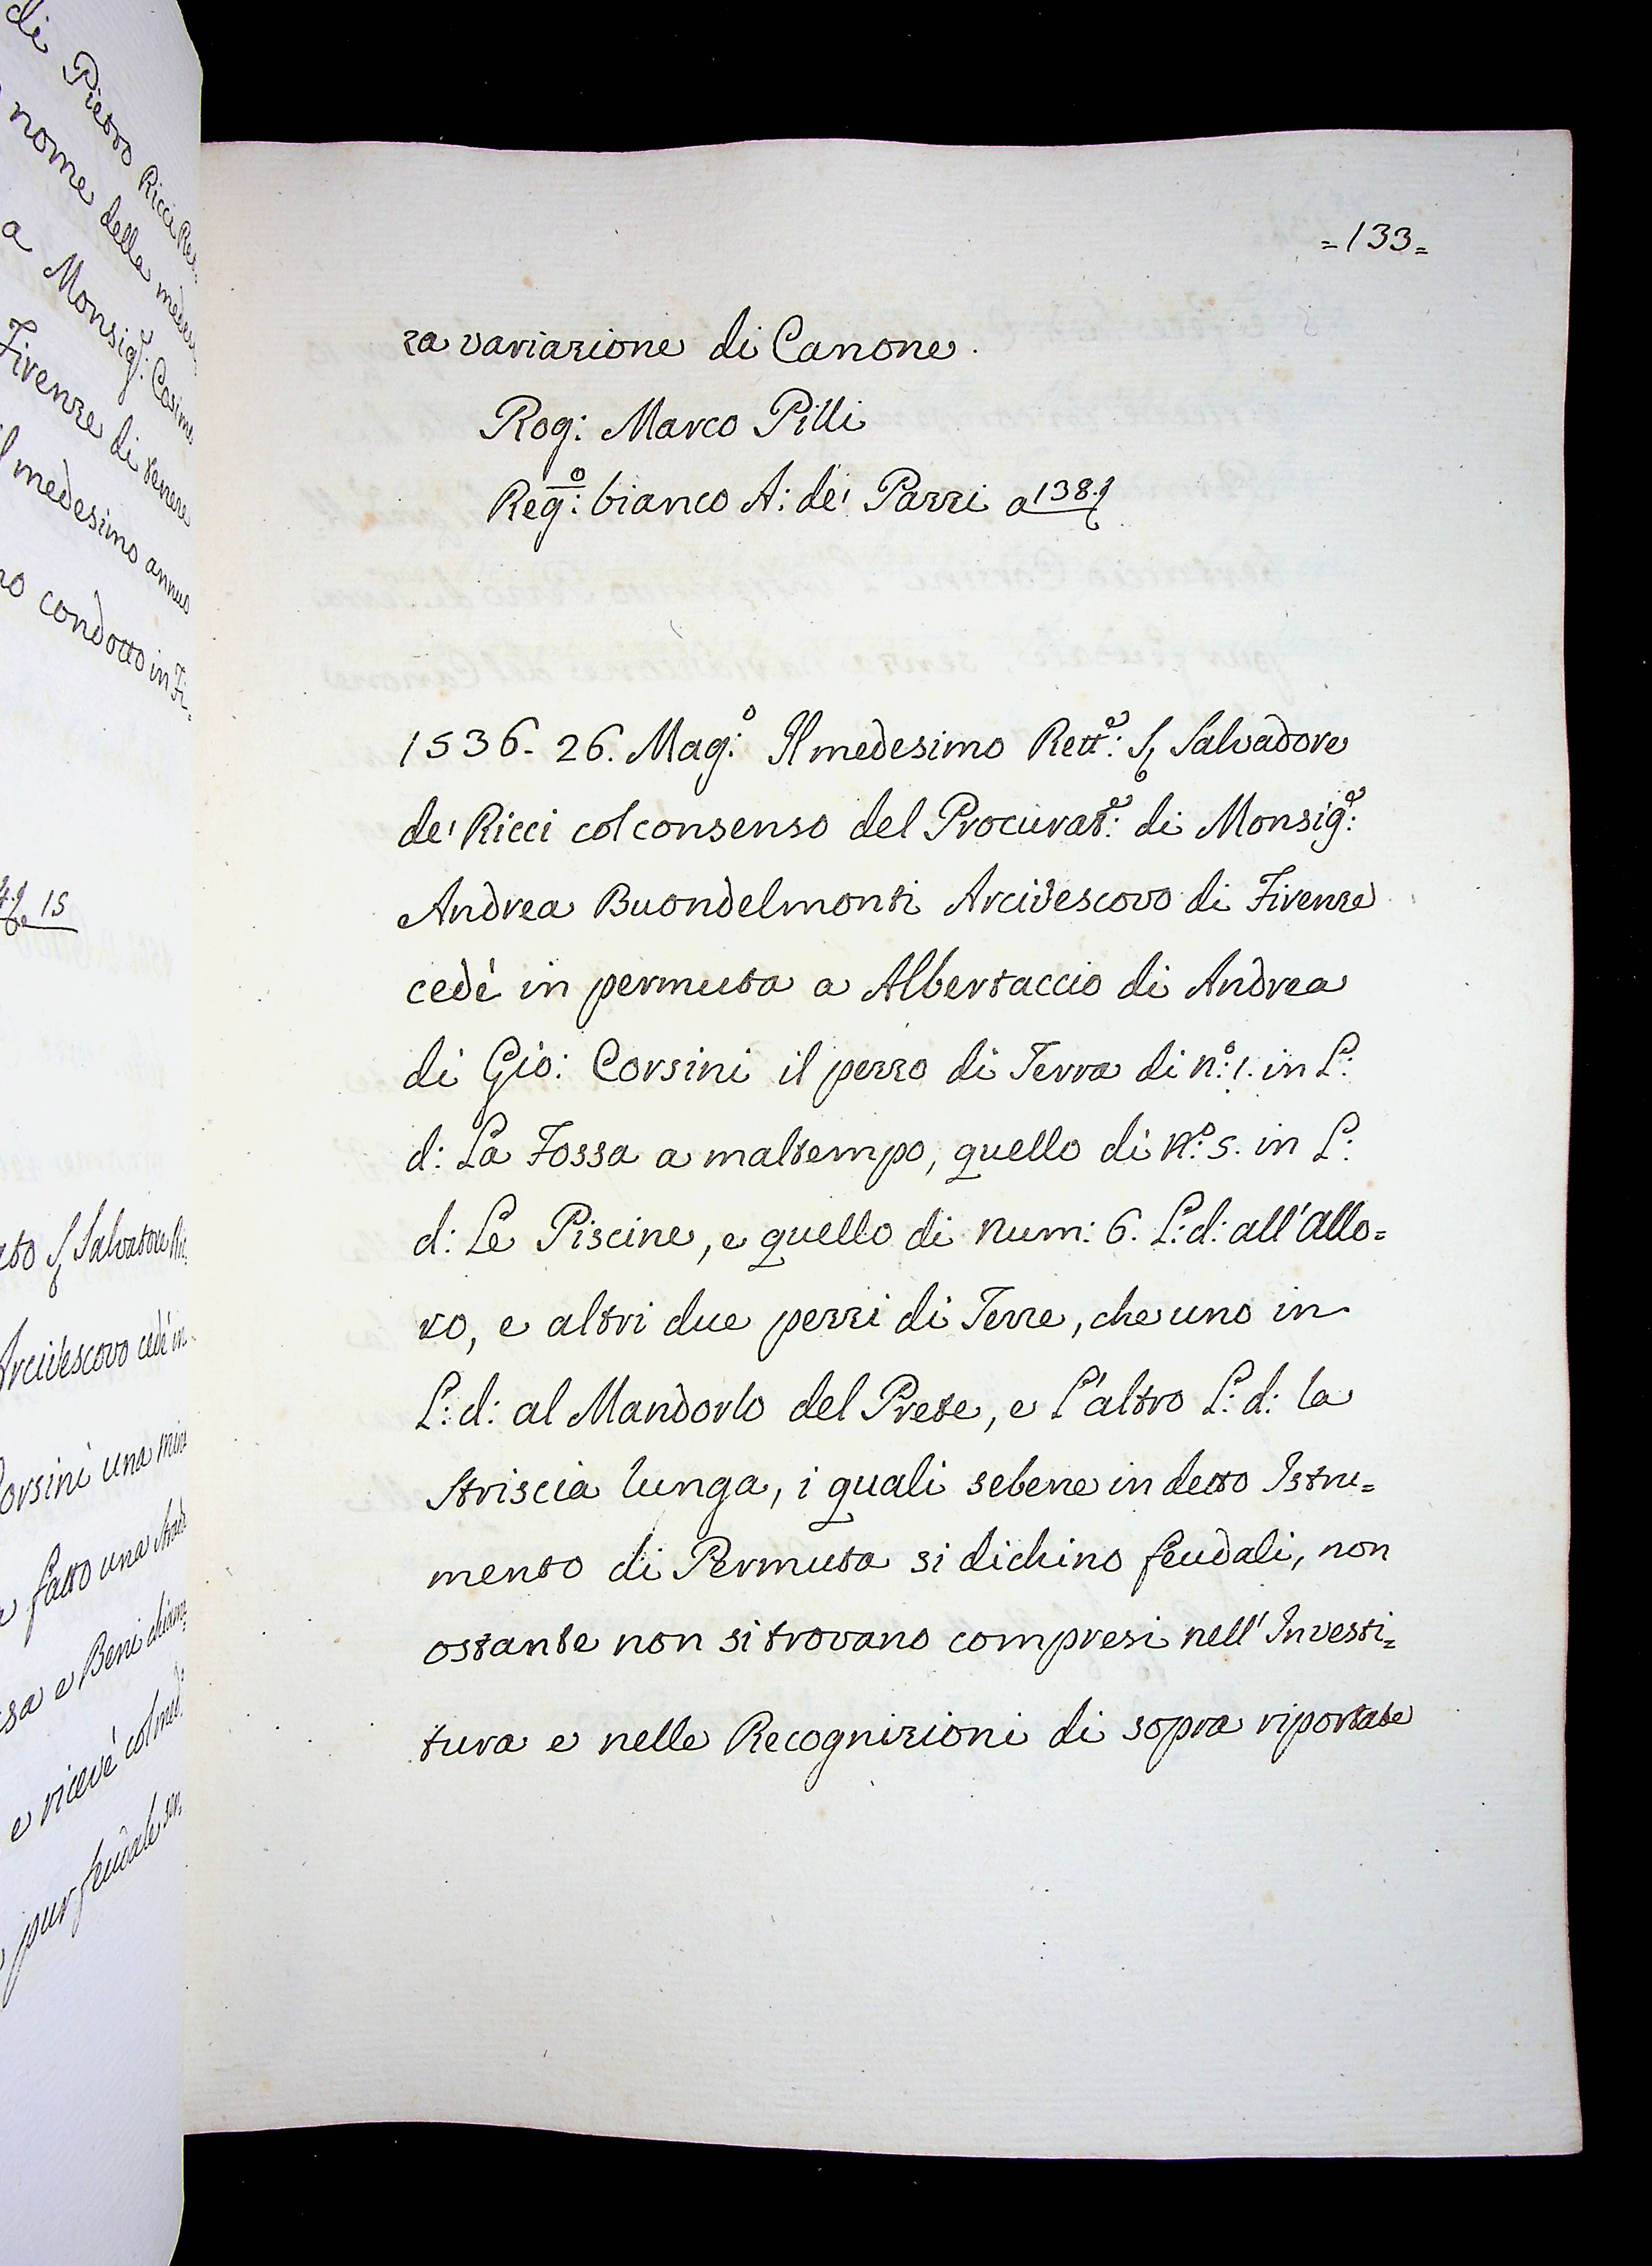 di Pietro Ricci
nome della
a Monsig.r: Cosimo
Firenze di tenere
medesimo annuo
condotto in Fi-
15
S Salvatore
Arcivescovo cedè in
Corsini una
fatto una
e Beni
e ricevè col
pur feudale
=133=
za variazione di Canone.
Rog: Marco Pilli
Reg:o bianco A: de' Pazzi a 138.
1536. 26. Mag:o Il medesimo Rett:e S Salvadore
de' Ricci col consenso del Procurat:e di Monsig:e
Andrea Buondelmonti Arcivescovo di Firenze
cedè in permuta a Albertaccio di Andrea
di Gio: Corsini il pezzo di Terra di n:o 1. in L:
d: La Fossa a maltempo, quello di n:o 5. in L:
d: Le Piscine, e quello di num: 6. L: d: all'Allo=
ro, e altri due pezzi di Terre, che uno in
L: d: al Mandorlo del Prete, e l'altro L: d: la
Striscia lunga, i quali sebene in detto Istru=
mento di Permuta si dichino feudali, non
ostante non si trovano compresi nell'Investi=
tura e nelle Recognizioni di sopra riportate